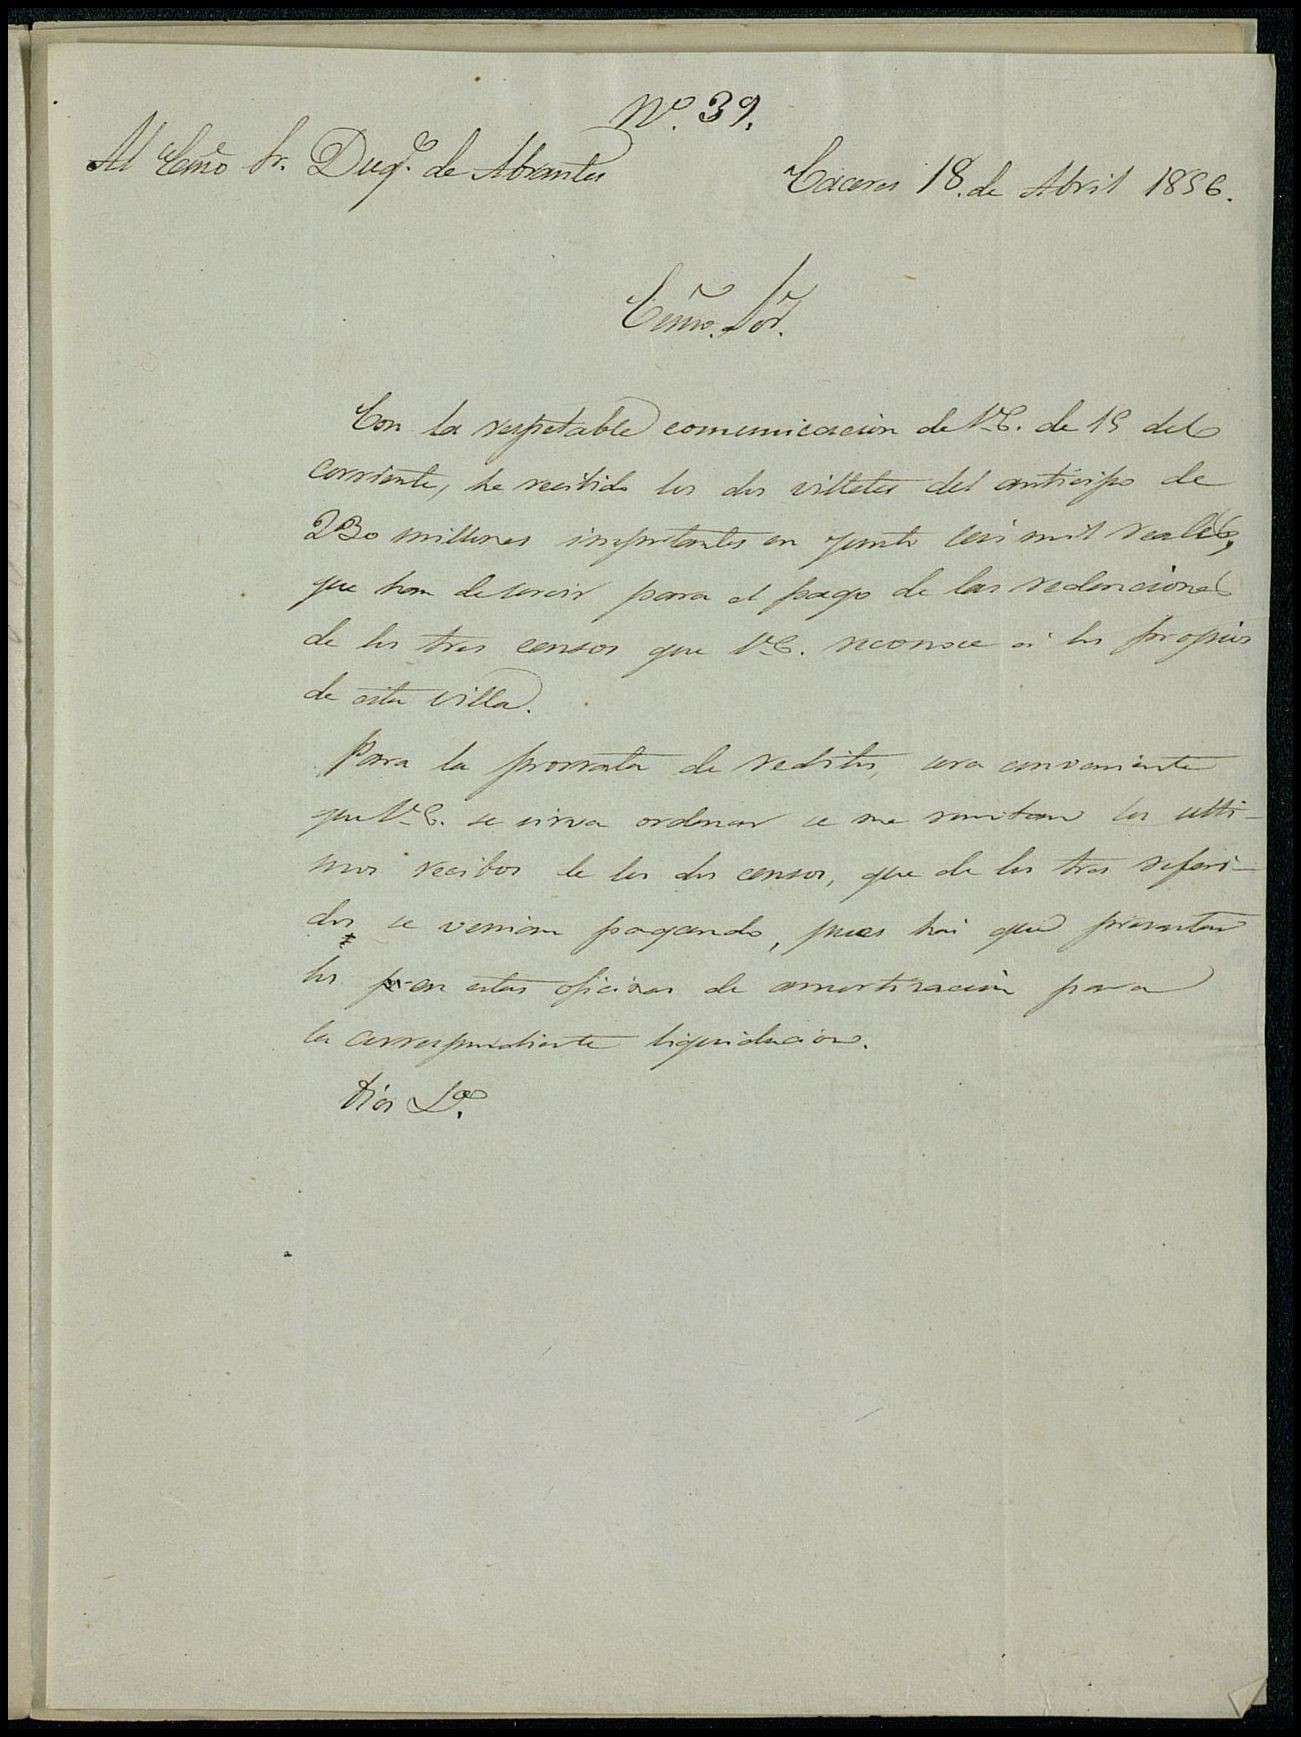 Nº. 39.
Al Exmo Sr. Duqe. de Abrantes
Cáceres 18. de Abril 1856.
Exmo. Sor.
Con la respetable comunicacion de V.E. de 15 del
corriente, he recibido los dos villetes del anticipo de
230 millones importantes en junto seis mil reales,
que han de servir para el pago de las redenciones
de los tres censos que V.E. reconoce á los propios
de esta villa.
Para la prorrata de reditos, sera conveniente
que V.E. se sirva ordenar se me remitan los ulti-
mos recibos de los dos censos, que de los tres referi-
dos se venian pagando, pues hai que presentar
los en estas oficinas de amortizacion para
la correspondiente liquidacion.
Dios &a.